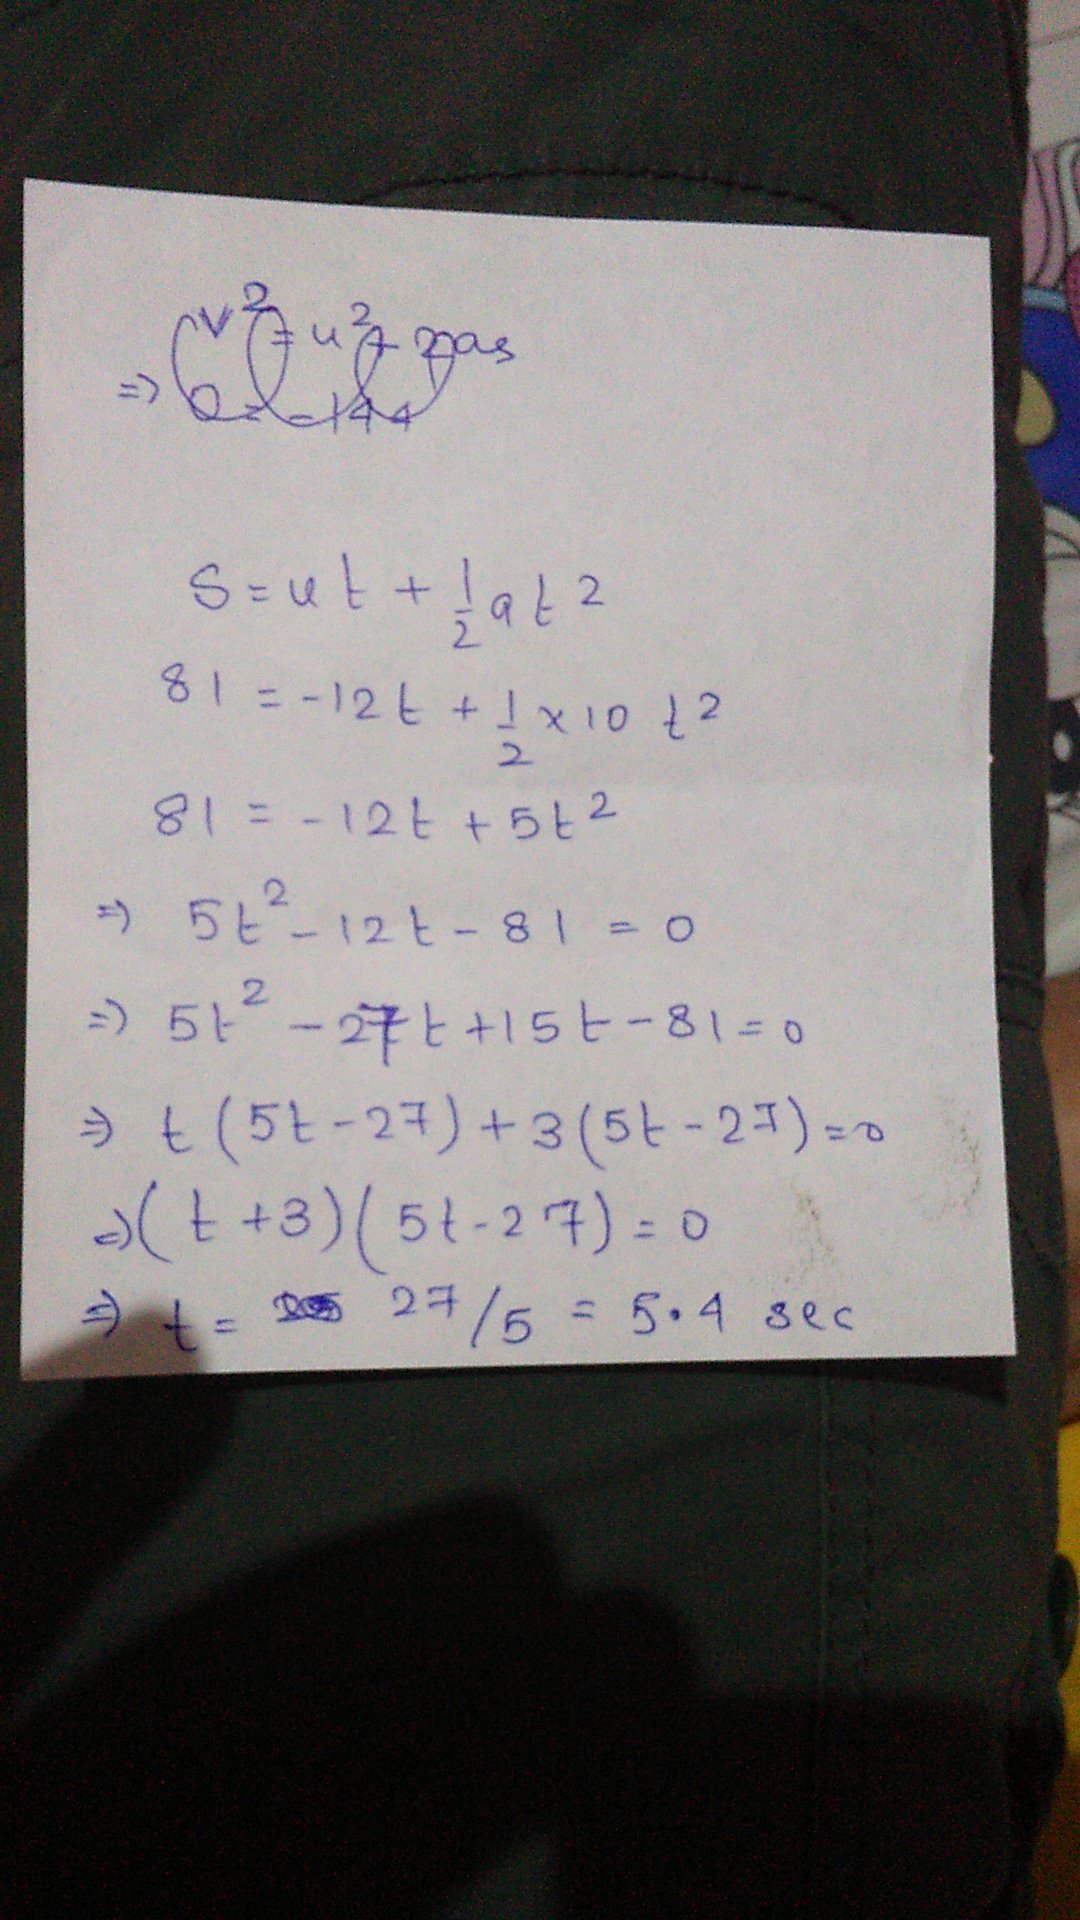 v² = u² + 2as
=> 0 = -144
S = ut + 1/2 at²
81 = -12t + 1/2 × 10 t²
81 = -12t + 5t²
=> 5t² - 12t - 81 = 0
=> 5t² - 27t + 15t - 81 = 0
=> t(5t - 27) + 3(5t - 27) = 0
=> (t + 3)(5t - 27) = 0
=> t = 27/5 = 5.4 sec